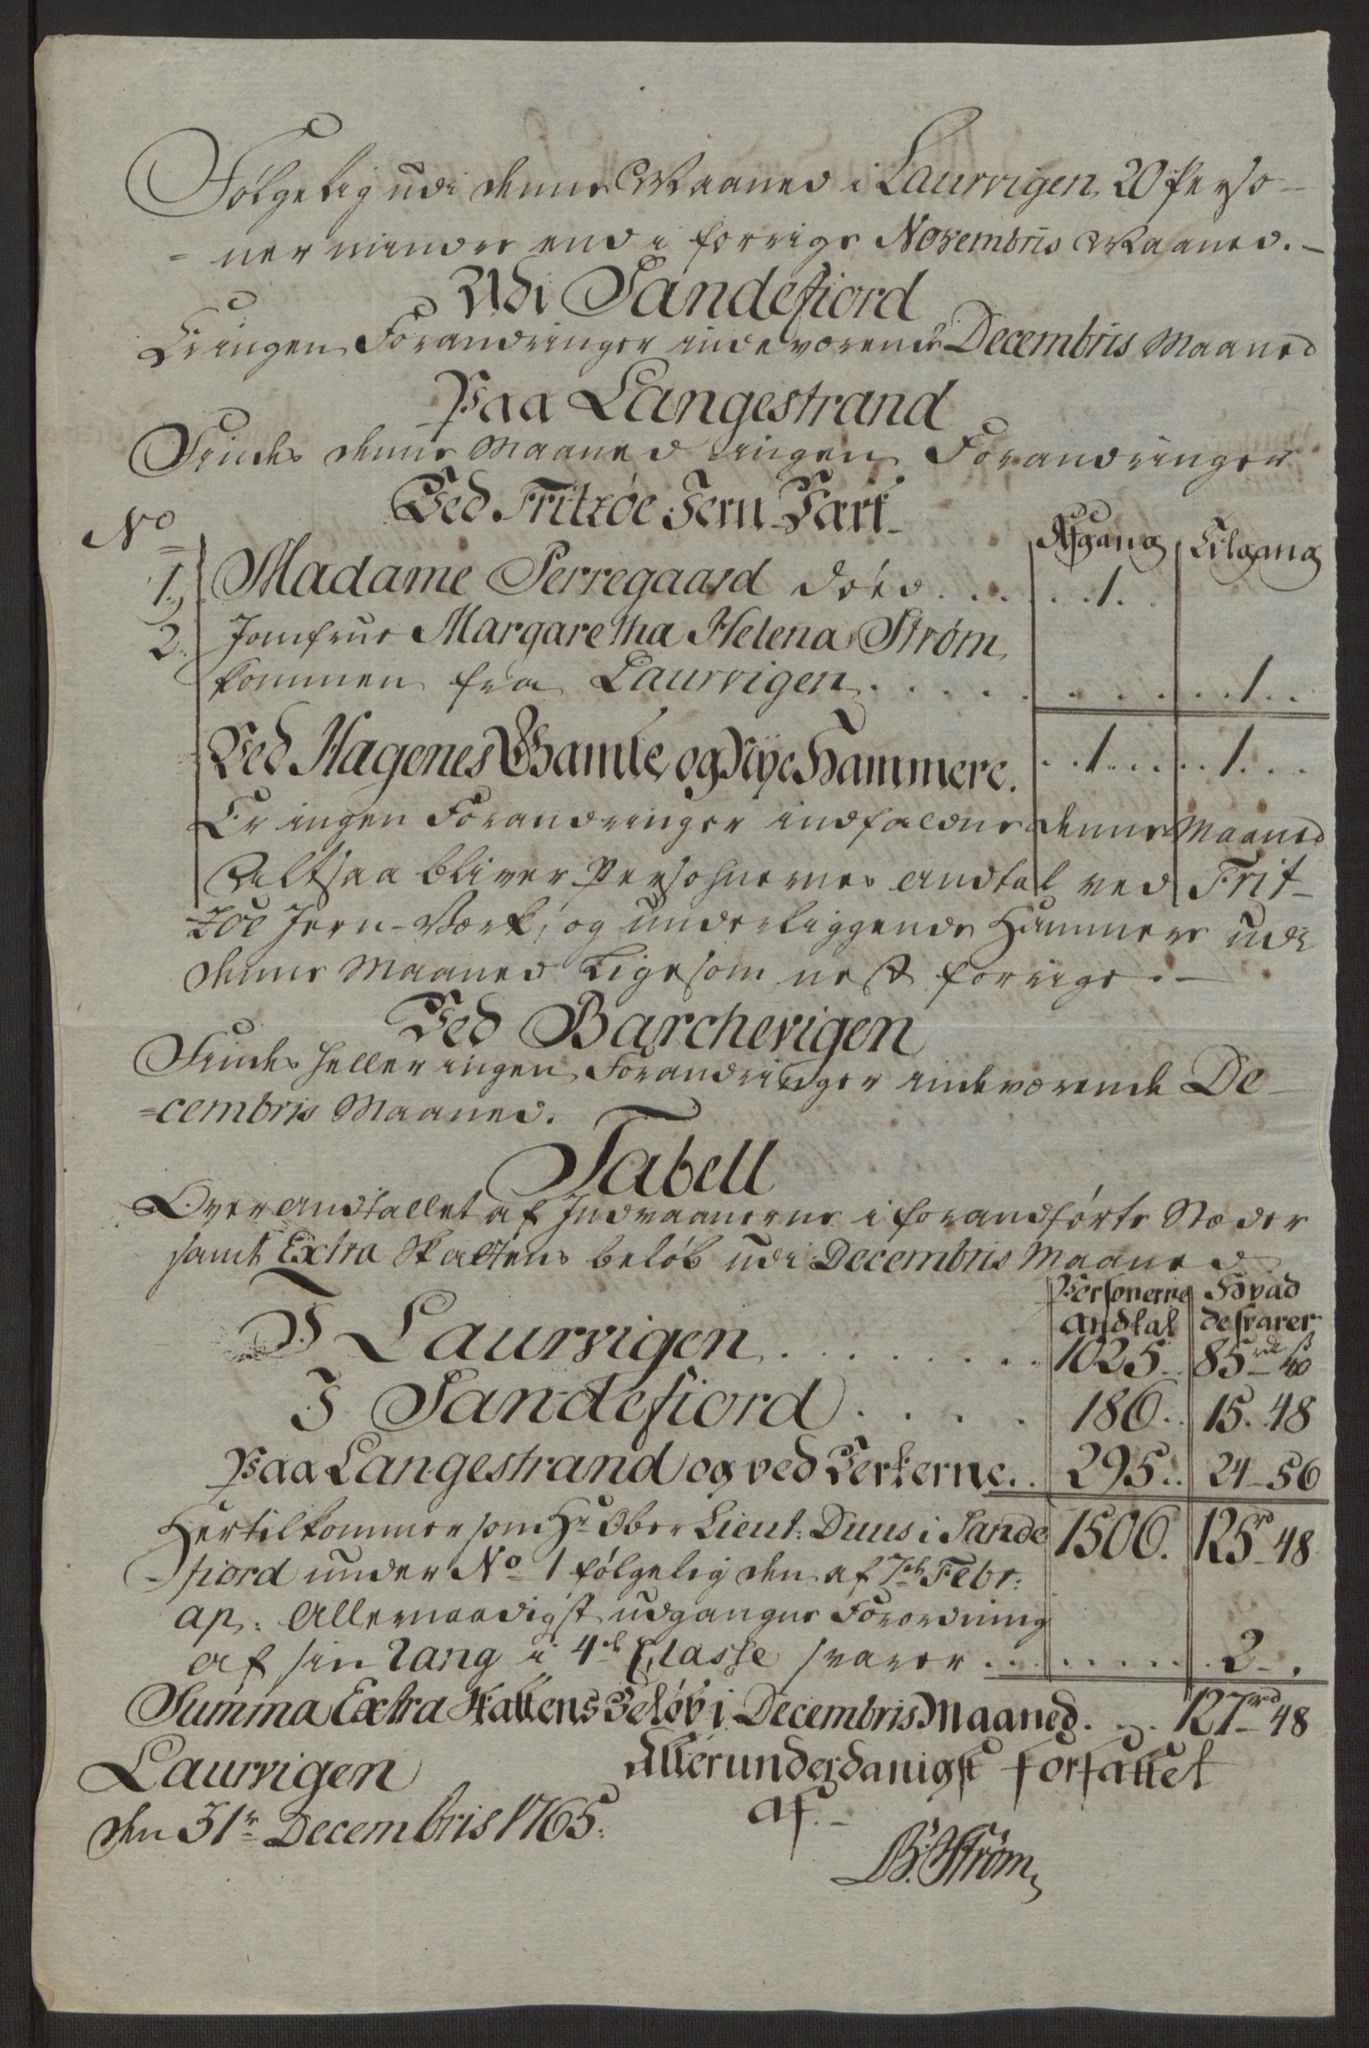 Følgelig udi denne Maaned i Laurvigen 20 Perso-
-ner mindre end i forrige Novembris Maaned.-
Udi Sandefiord
Er ingen Forandringer indeværende Decembris Maaned
Paa Langestrand
Findes denne Maaned ingen Forandringer
Ved Fritzøe Jern-Værk-
No Afgang Tilgang
1. Madame Perregaard død. . . . 1. .
2. Jomfrue Margaretha Helena Strøm
kommen fra Laurvigen . . . . . . . 1. .
Ved Hagenes Gamle og Nye Hammere. . . 1. . . . 1. . .
Er ingen Forandringer indfaldne denne Maaned
Altsaa bliver Persohnernes Andtal ved Frit-
-zøe Jern-Værk, og underliggende Hammere udi
denne Maaned ligesom nest forrige.-
Ved Barchevigen
Findes heller ingen Forandringer indeværende De-
=cembris Maaned.
Tabell
Over Andtallet af Indvaanerne i foranførte Stæder
samt Extra Skattens beløb udi Decembris Maaned
Personernes Andtal Hvad de svarer
I Laurvigen . . . . . . . . 1025. 85 rd 40 s
I Sandefiord . . . . 186. . 15. 48
Paa Langestrand og ved Verkerne. . 295. . 24-56
Hertil kommer som Hr Ober Lieut: Duus i Sande 1506. 125 rd 48
-fiord under No 1 følgelig den af 7de Febr:
ap: Allernaadigst udgangne Forordning
af sin Rang i 4de Classe svarer . . . . . . . . 2-.
Summa Extra Skattens Beløb i Decembris Maaned. . . 127 rd 48
Laurvigen Allerunderdanigst forfattet
den 31te Decembris 1765. af.-
B: Strøm